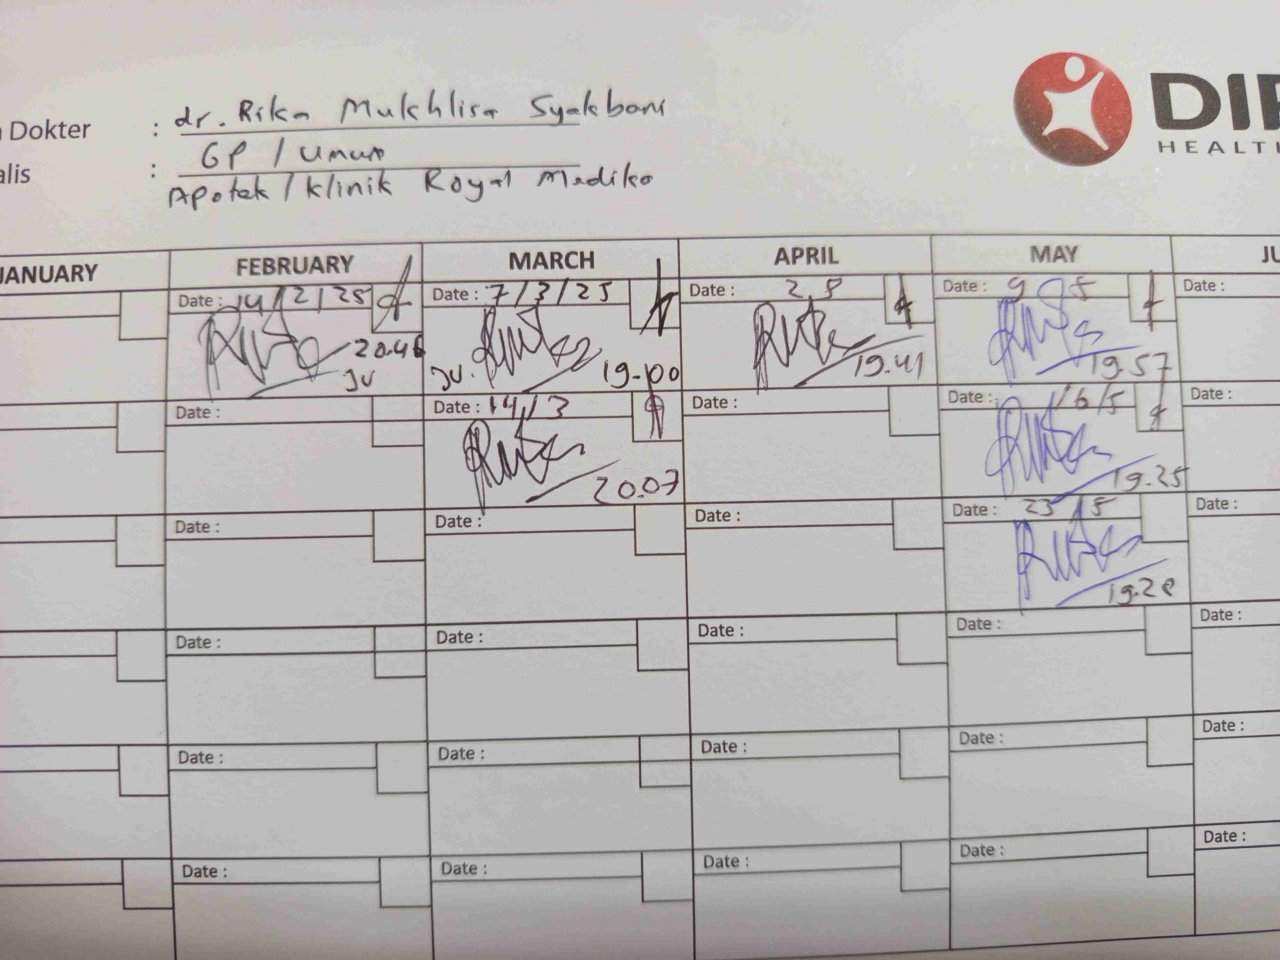 a Dokter : dr. Rika Mukhlisa Syakbani
alis : GP / Umum
Apotek / Klinik Royal Medika
DI
HEALT
JANUARY FEBRUARY MARCH APRIL MAY JU
Date : 14/2/25 Date : 7/3/25 Date : Date : 9 5 Date :
20.46 19.00 19.41 19.57
Date : Date : 14/3 Date : Date : 16/5 Date :
20.07 19.25
Date : Date : Date : Date : 23/5 Date :
19.28
Date : Date : Date : Date : Date :
Date : Date : Date : Date : Date :
Date : Date : Date : Date : Date :